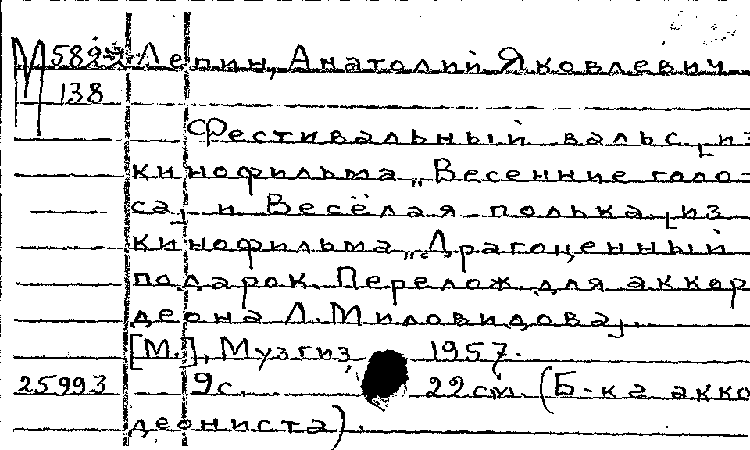 М 5822 Лепин, Анатолий Яковлевич
138
Фестивальный вальс [из
кинофильма „Весенние голо-
са] и Весёлая полька [из
кинофильма „Драгоценный
подарок. Перелож. для аккор
деона Л. Миловидова].
[М.], Музгиз, 1957.
25993 9с. 22см. (Б-ка акко
деониста).